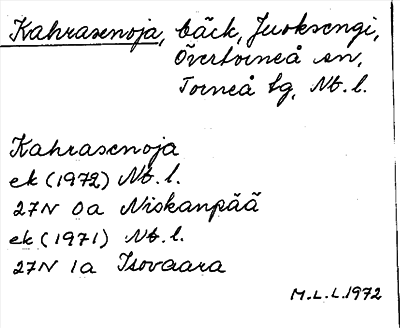 Kahrasenoja, bäck, Juoksengi,
Övertorneå sn,
Torneå tg, Nb. l.
Kahrasenoja
ek (1972) Nb. l.
27N 0a Niskanpää
ek (1971) Nb. l.
27N 1a Isovaara
M.L.L. 1972